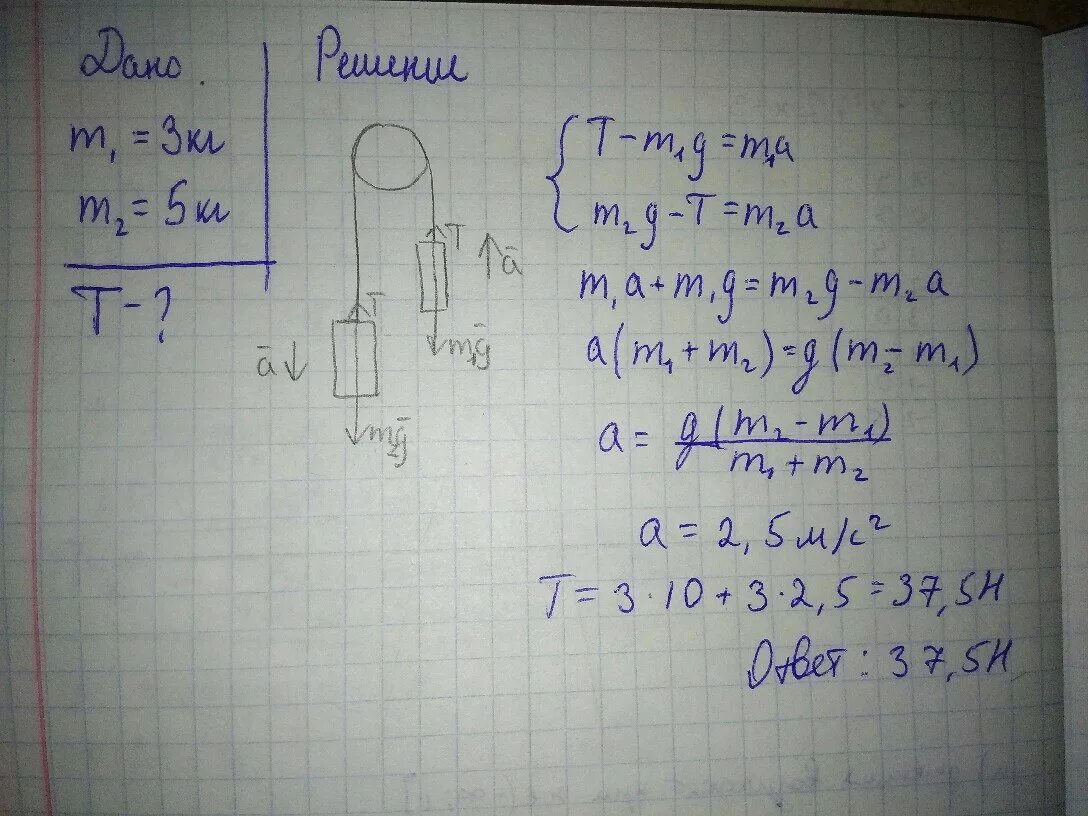 Дано.
m₁ = 3кг
m₂ = 5кг
T - ?
Решение
T
ā
T
m₁ḡ
ā
m₂ḡ
T - m₁g = m₁a
m₂g - T = m₂a
m₁a + m₁g = m₂g - m₂a
a(m₁ + m₂) = g(m₂ - m₁)
a = g(m₂ - m₁) / m₁ + m₂
a = 2,5м/с²
T = 3·10 + 3·2,5 = 37,5Н
Ответ: 37,5Н